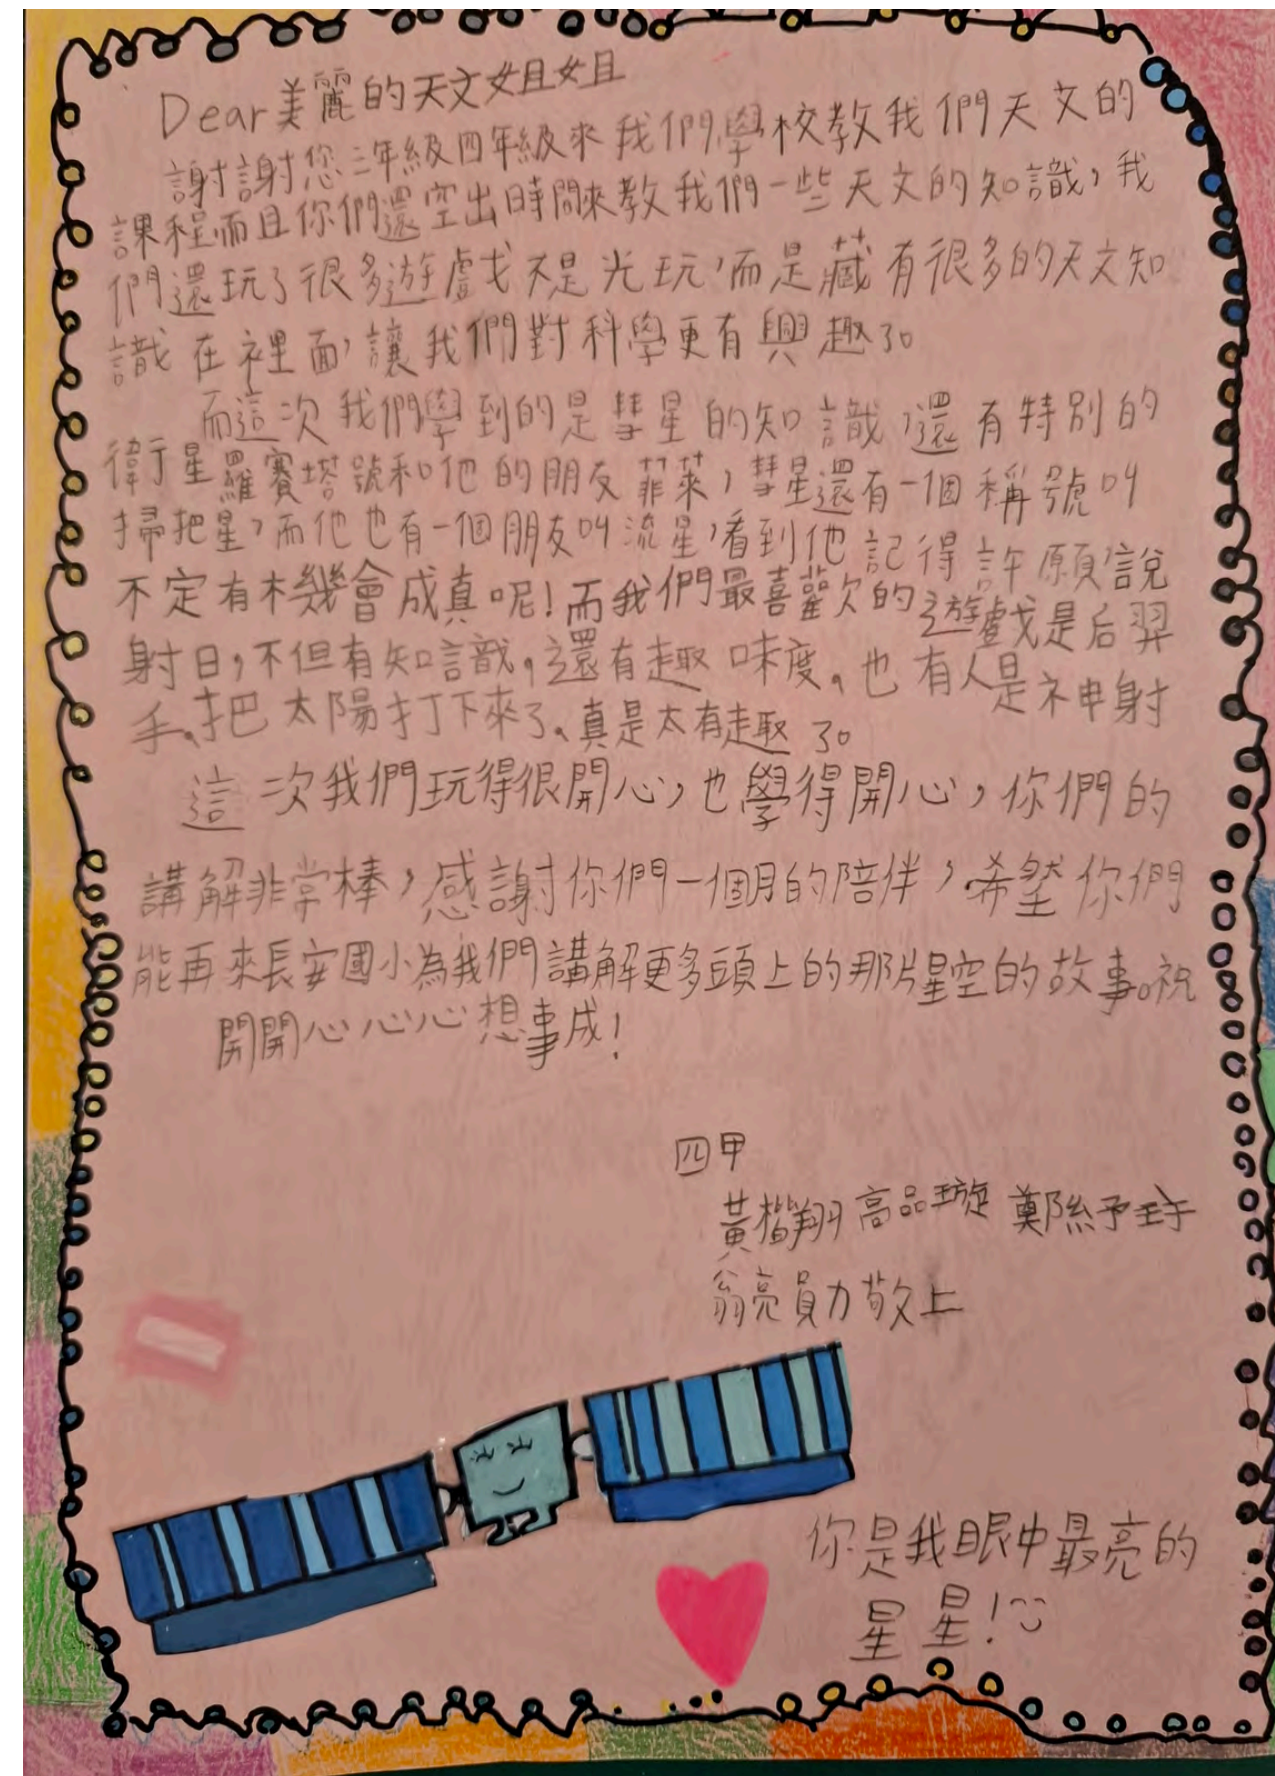 Dear美麗的天文姐姐
謝謝您三年級四年級來我們學校教我們天文的
課程而且你們還空出時間來教我們一些天文的知識，我
們還玩了很多遊戲不是光玩，而是藏有很多的天文知
識在裡面，讓我們對科學更有興趣了。
而這次我們學到的是彗星的知識，還有特別的
衛星羅賽塔號和他的朋友菲萊，彗星還有一個稱號叫
掃把星，而他也有一個朋友叫流星，看到他記得許願，說
不定有機會成真呢!而我們最喜歡的遊戲是后羿
射日，不但有知識。還有趣味度。也有人是神射
手、把太陽打下來了、真是太有趣了。
這次我們玩得很開心，也學得開心，你們的
講解非常棒，感謝你們一個月的陪伴，希望你們
能再來長安國小為我們講解更多頭上的那片星空的故事。祝
開開心心心想事成!
四甲
黃楷翔 高品璇 鄭紓玗
翁亮勛敬上
你是我眼中最亮的
星星!